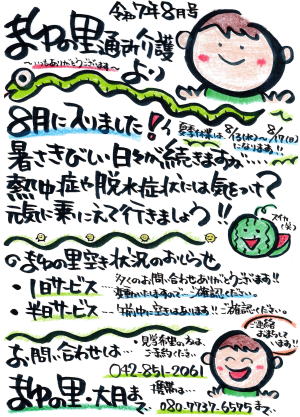 令和7年8月号
まゆの里通所介護
～いつもありがとうございます～
より
8月に入りました！！
夏季休業は8/13(水)～8/17(日)
になります!!
暑さきびしい日々が続きますが…
熱中症や脱水症状には気をつけて
元気に乗りこえて行きましょう!!
スイカ(笑)
まゆの里空き状況のおしらせ
・1日サービス…
多くのお問い合わせありがとうございます!!
ご確認ください。
・半日サービス…
空きはあります!!ご確認ください。
お問い合わせは…
見学希望の方は、
ご予約ください。
ご連絡
お待ちして
います!!
042-851-2061
携帯は…
まゆの里・大月まで
080-7737-6595まで